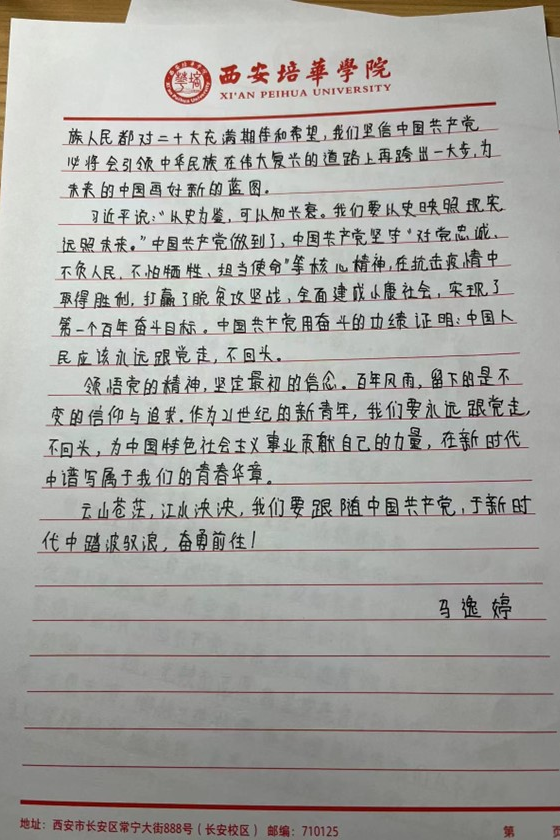 西安培華學院
XI'AN PEIHUA UNIVERSITY
族人民都对二十大充满期待和希望,我们坚信中国共产党
必将会引领中华民族在伟大复兴的道路上再跨出一大步,为
未来的中国画好新的蓝图。
习近平说:“从史为鉴,可以知兴衰。我们要从史映照现实
远照未来。”中国共产党做到了,中国共产党坚守“对党忠诚、
不负人民、不怕牺牲、担当使命”等核心精神,在抗击疫情中
取得胜利,打赢了脱贫攻坚战,全面建成小康社会,实现了
第一个百年奋斗目标。中国共产党用奋斗的功绩证明:中国人
民应该永远跟党走,不回头。
领悟党的精神,坚定最初的信念。百年风雨,留下的是不
变的信仰与追求。作为21世纪的新青年,我们要永远跟党走,
不回头,为中国特色社会主义事业贡献自己的力量,在新时代
中谱写属于我们的青春华章。
云山苍茫,江水泱泱,我们要跟随中国共产党,于新时
代中踏波驭浪,奋勇前往!
马逸婷
地址:西安市长安区常宁大街888号(长安校区) 邮编:710125 第